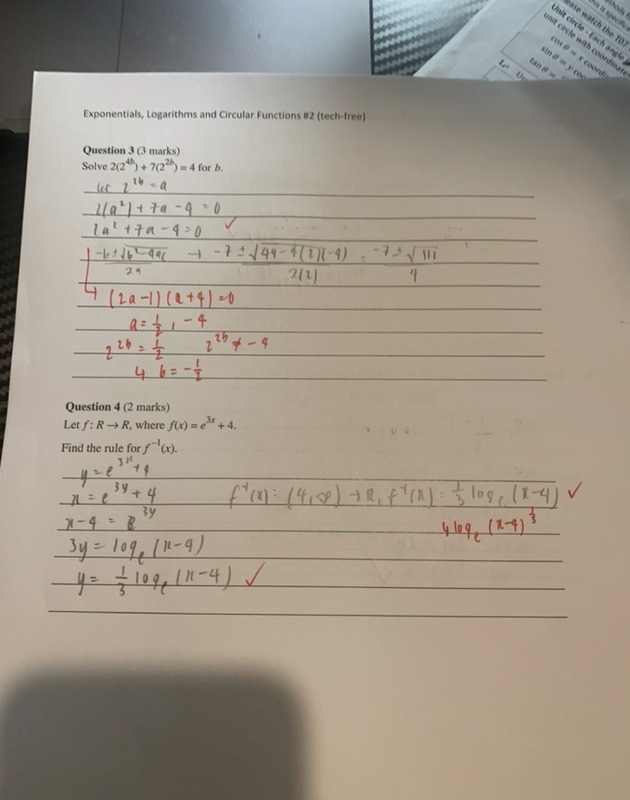 ease watch the TO7
Unit circle - Each angle
unit circle with coordinate
cos θ = x coordin
sin θ = y coo
tan θ =
Exponentials, Logarithms and Circular Functions #2 (tech-free)
Question 3 (3 marks)
Solve 2(2^{4b}) + 7(2^{2b}) = 4 for b.
let 2^{2b} = a
2(a²) + 7a - 4 = 0
2a² + 7a - 4 = 0 ✓
-b ± √b² - 4ac / 2a → -7 ± √49 - 4(2)(-4) / 2(2) = -7 ± √111 / 4
↳ (2a-1)(a+4)=0
a = 1/2, -4
2^{2b} = 1/2 2^{2b} ≠ -4
↳ b = -1/2
Question 4 (2 marks)
Let f: R → R, where f(x) = e^{3x} + 4.
Find the rule for f^{-1}(x).
y = e^{3x} + 4
x = e^{3y} + 4
x - 4 = e^{3y}
3y = log_e (x-4)
y = 1/3 log_e (x-4) ✓
f^{-1}(x): (4, ∞) → R, f^{-1}(x) = 1/3 log_e (x-4) ✓
↳ log_e (x-4)^{1/3}